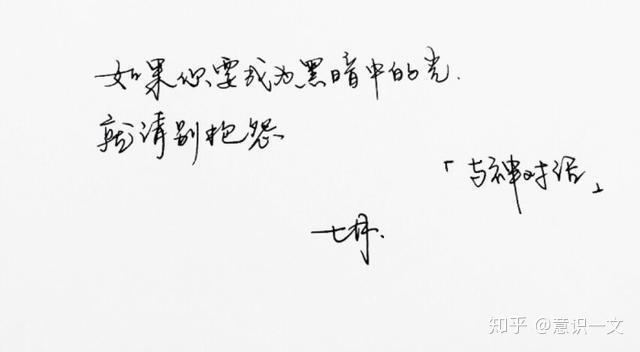 如果您要成为黑暗中的光.
就请别抱怨
「与神对话」
知乎 @意识一文